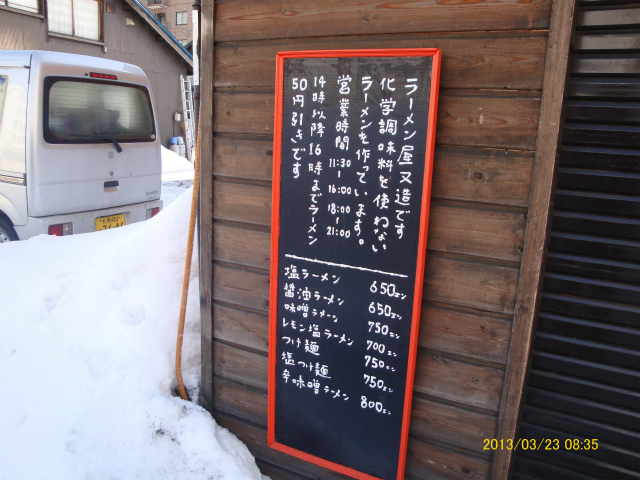 ラーメン屋又造です
化学調味料を使わない
ラーメンを作っています。
営業時間 11:30
16:00
18:00
21:00
14時以降16時までラーメン
50円引きです
塩ラーメン 650エン
醤油ラーメン 650エン
味噌ラーメン 750エン
レモン塩ラーメン 700エン
つけ麺 750エン
塩つけ麺 750エン
辛味噌ラーメン 800エン
2013/03/23 08:35